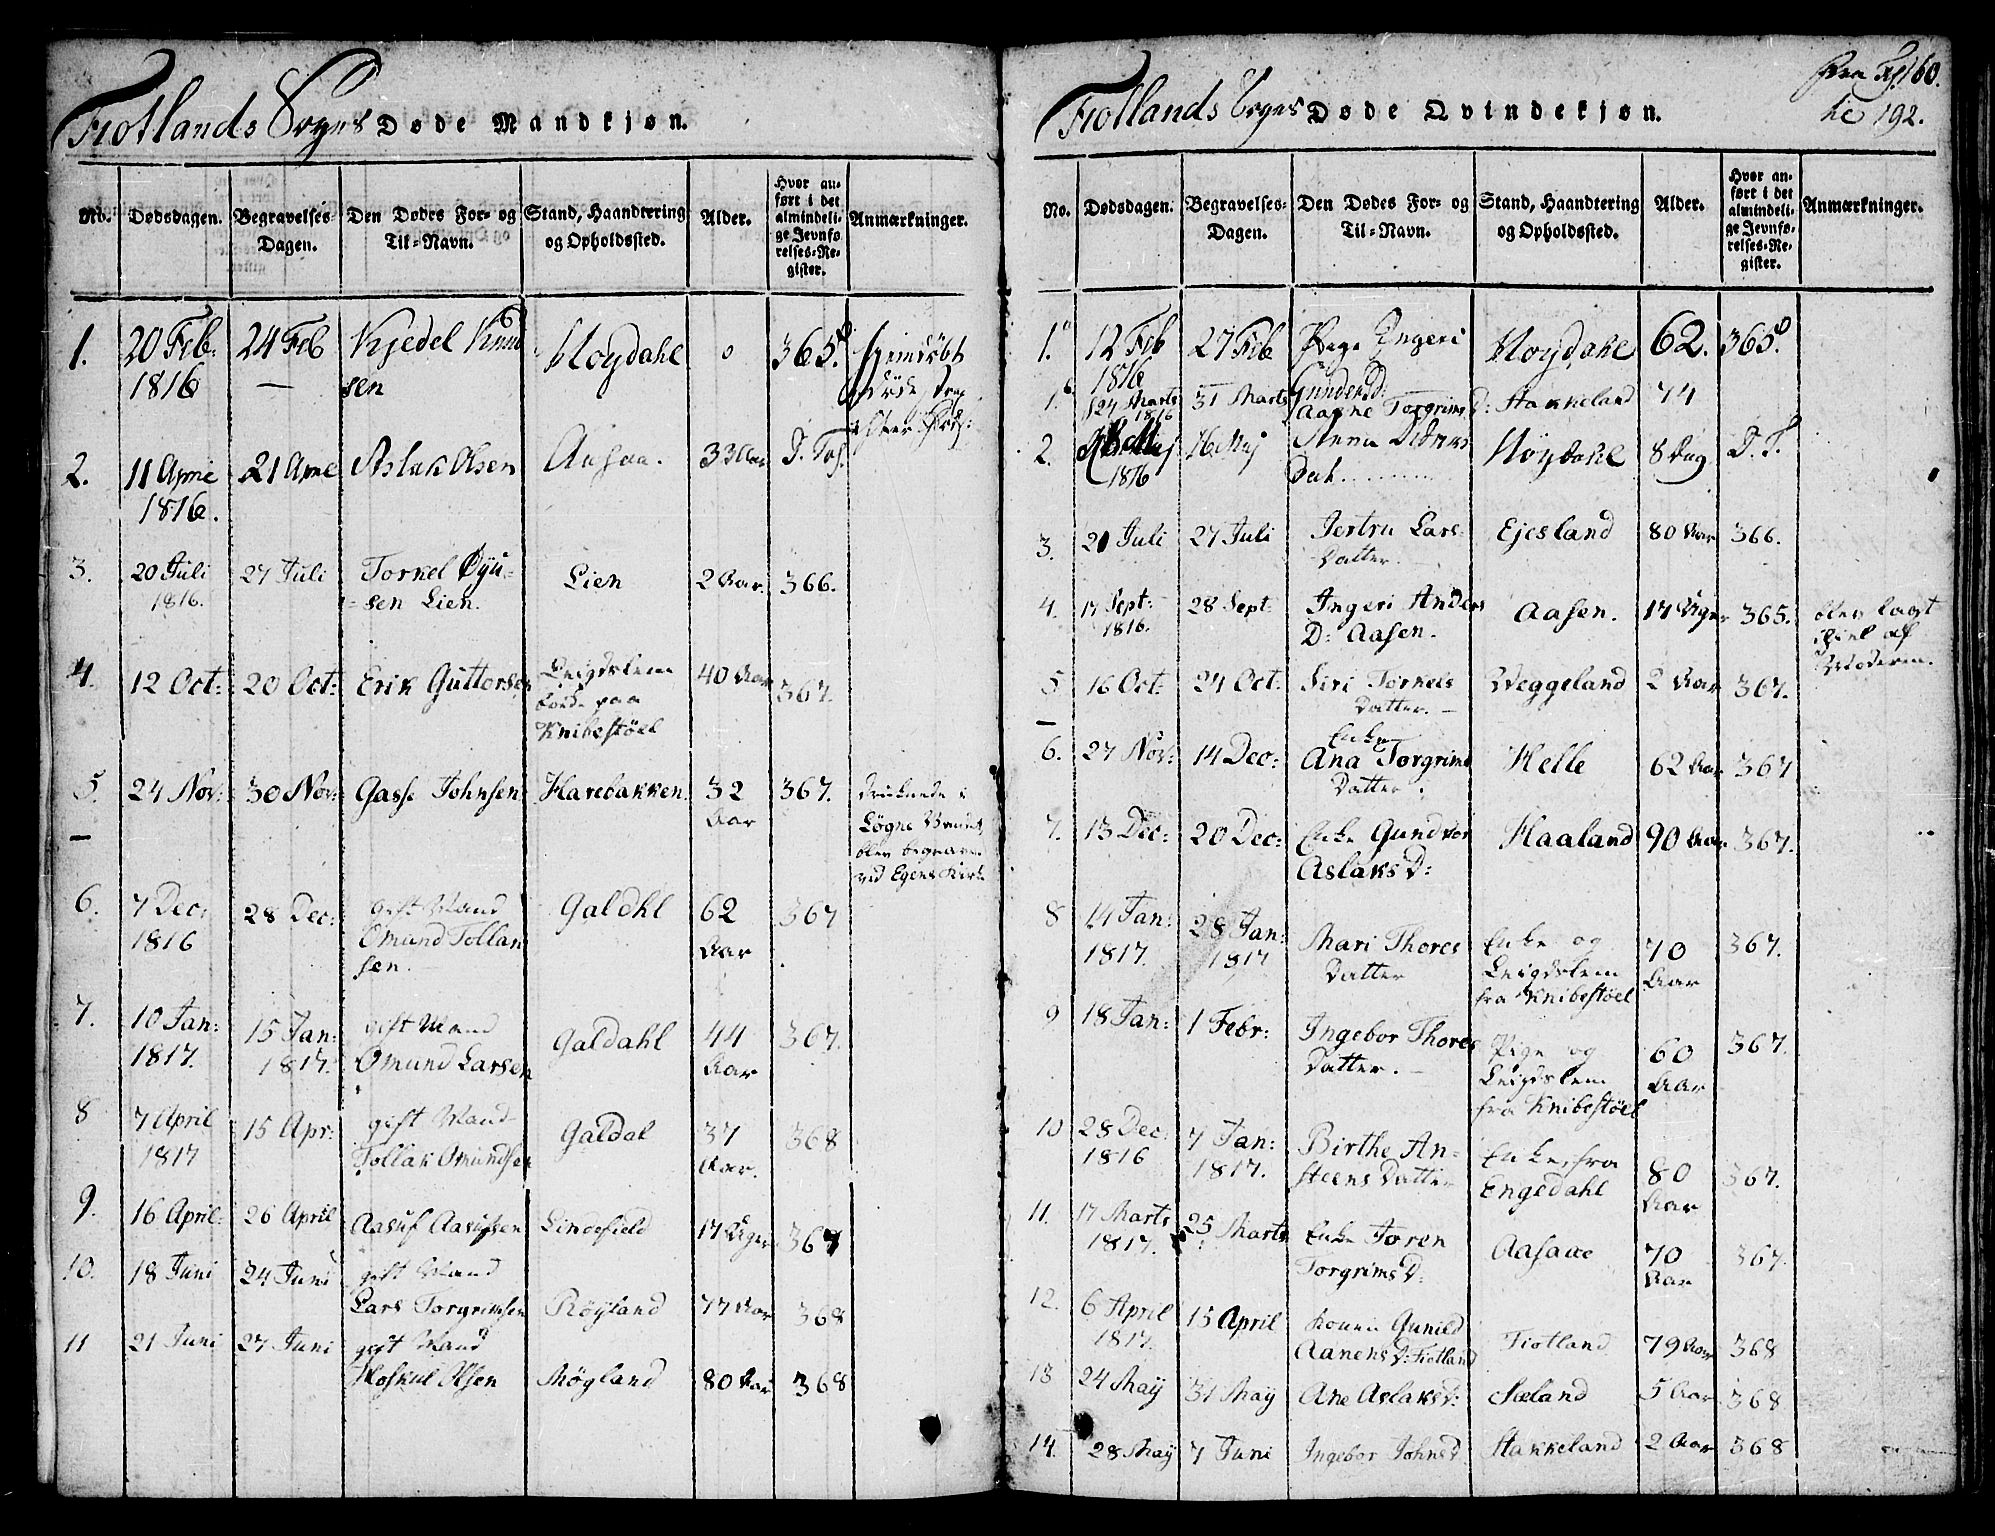 Fiotlands Sogns Døde Mandkjøn.
No. Dødsdagen. Begravelses-Dagen. Den Dødes For- og Til-Navn. Stand, Haandtering og Opholdssted. Alder. Hvor anført i det almindelige Jevnførelses-Register. Anmærkninger.
1. 20 Feb: 24 Feb Kjedel Knud Høydahl 0 365.
1816 — sen
2. 11 April 21 April Aslak Olsen Aasaa. 33 Aar
1816.
3. 20 Juli 27 Juli Torkel Øyu- Lien 2 Aar. 366.
1816. sen Lien.
4. 12 Oct: 20 Oct: Erik Guttorsen Leigdslem 40 Aar 367.
paa
Knibestöel
5. 24 Nov: 30 Nov: Gasse Johnsen Harebakken 32 367. druknede i
Aar Løgne Vandet,
blev begraven
ved Egens Kirke
6. 7 Dec: 28 Dec: gift Mand Galdhl 62 367
1816 Omund Tollak Aar
sen.
7. 10 Jan: 15 Jan: gift Mand Galdahl 44 367.
1817. 1817. Omund Larsen Aar
8 7 April 15 Apr: gift Mand Galdal 37 368
1817 Tollak Omundsen Aar.
9. 16 April: 26 April Aasuf Aasufsen Lindefield 17 Uger 367
10. 18 Juni 24 Juni gift Mand
Lars Torgrimsen Röyland 77 Aar 368
11 21 Juni 27 Juni gift Mand
Hoskul Olsen Mögland 80 Aar 368
Fiotlands Sogns Døde Qvindekjøn.
192.
No. Dødsdagen. Begravelses-Dagen. Den Dødes For- og Til-Navn. Stand, Haandtering og Opholdssted. Alder. Hvor anført i det almindelige Jevnførelses-Register. Anmærkninger.
1. 12 Feb 27 Feb Pige Ingeri Høydahl 62. 365.
1816 Gunders D:
1. 24 Marts 31 Marts Aanne Torgrims D: Stakkeland 74
1816
2. 16 Maj Anna Höydahl 8 Dag D. T.
1816 Dat.........
3. 21 Juli 27 Juli Jertru Lars Ejesland 80 Aar 366.
Datter.
4. 17 Sept: 28 Sept: Ingeri Anders Aasen. 17 Uger 365. blev lagt
1816. D: Aasen. ihiel af
Moderen.
5 16 Oct: 24 Oct: Siri Torkels Veggeland 2 Aar 367.
Datter. —
6. 27 Nov: 14 Dec: Enke
Ana Torgrims Helle 62 Aar 367
Datter.
7. 13 Dec: 20 Dec: Enke Gundvor Haaland 90 Aar 367.
Aslaks D:
8 14 Jan: 28 Jan: Mari Thores Enke og 70 367.
1817. 1817 Datter Leigdslem Aar
fra Knibestöel
9 18 Jan: 1 Febr: Ingebor Thores Pige og 60 367.
Datter. — Leigdslem Aar
fra Knibestöel
10 28 Dec: 7 Jan: Birthe An- Enke, fra 80 367.
1816 1817. steens Datter Engedahl Aar
11. 17 Marts 25 Marts Enke Joren Aasaae 70 367.
1817. Torgrims D: Aar
12. 6 April 15 April Konen Gunild Fiotland 79 Aar 368
1817. Aanens D: Fiotland
13 24 May 31 May Ane Aslaks D: Sæland 5 Aar 368
14. 28 May 7 Juni Ingebor Johns D Stakkeland 2 Aar 368